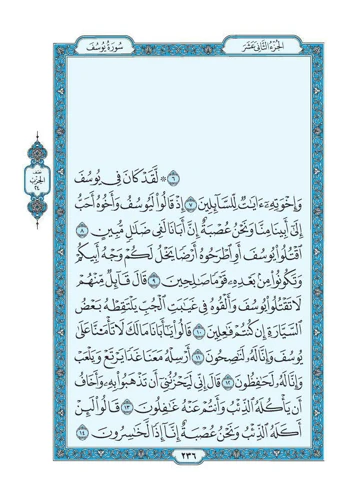 الجزء الثاني عشر
سورة يوسف
نصف
الحزب
٢٤
٦ ۞ لَّقَدۡ كَانَ فِي يُوسُفَ
وَإِخۡوَتِهِۦٓ ءَايَٰتٞ لِّلسَّآئِلِينَ ٧ إِذۡ قَالُواْ لَيُوسُفُ وَأَخُوهُ أَحَبُّ
إِلَىٰٓ أَبِينَا مِنَّا وَنَحۡنُ عُصۡبَةٌ إِنَّ أَبَانَا لَفِي ضَلَٰلٖ مُّبِينٍ ٨
ٱقۡتُلُواْ يُوسُفَ أَوِ ٱطۡرَحُوهُ أَرۡضٗا يَخۡلُ لَكُمۡ وَجۡهُ أَبِيكُمۡ
وَتَكُونُواْ مِنۢ بَعۡدِهِۦ قَوۡمٗا صَٰلِحِينَ ٩ قَالَ قَآئِلٞ مِّنۡهُمۡ
لَا تَقۡتُلُواْ يُوسُفَ وَأَلۡقُوهُ فِي غَيَٰبَتِ ٱلۡجُبِّ يَلۡتَقِطۡهُ بَعۡضُ
ٱلسَّيَّارَةِ إِن كُنتُمۡ فَٰعِلِينَ ١٠ قَالُواْ يَٰٓأَبَانَا مَالَكَ لَا تَأۡمَ۬نَّا عَلَىٰ
يُوسُفَ وَإِنَّا لَهُۥ لَنَٰصِحُونَ ١١ أَرۡسِلۡهُ مَعَنَا غَدٗا يَرۡتَعۡ وَيَلۡعَبۡ
وَإِنَّا لَهُۥ لَحَٰفِظُونَ ١٢ قَالَ إِنِّي لَيَحۡزُنُنِيٓ أَن تَذۡهَبُواْ بِهِۦ وَأَخَافُ
أَن يَأۡكُلَهُ ٱلذِّئۡبُ وَأَنتُمۡ عَنۡهُ غَٰفِلُونَ ١٣ قَالُواْ لَئِنۡ
أَكَلَهُ ٱلذِّئۡبُ وَنَحۡنُ عُصۡبَةٌ إِنَّآ إِذٗا لَّخَٰسِرُونَ ١٤
٢٣٦